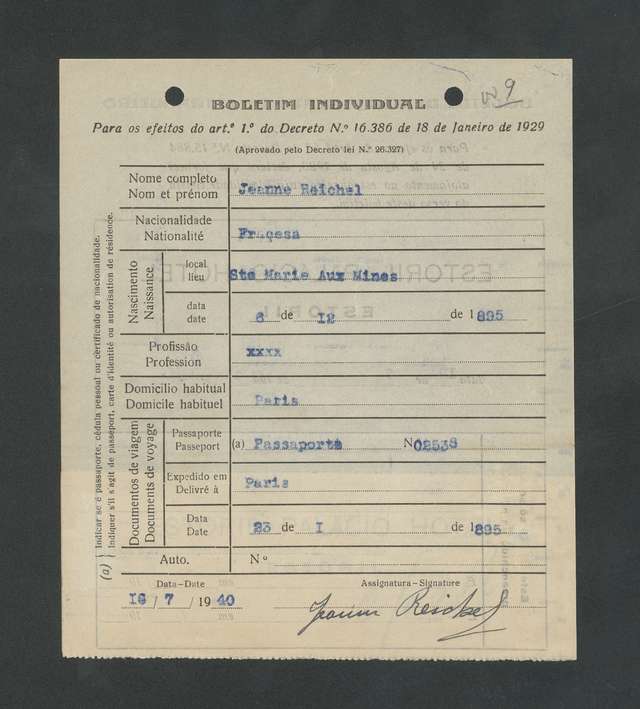 BOLETIM INDIVIDUAL
Para os efeitos do art.º 1.º do Decreto N.º 16.386 de 18 de Janeiro de 1929
(Aprovado pelo Decreto lei N.º 26.327)
Nome completo
Nom et prénom
Jeanne Reichel
Nacionalidade
Nationalité
Fraçesa
Nascimento
Naissance
local
lieu
Ste Marie Aux Mines
data
date
6 de I2 de 1895
Profissão
Profession
xxxx
Domicilio habitual
Domicile habituel
Paris
Documentos de viagem
Documents de voyage
Passaporte
Passeport
(a) Passaporte N 02538
Expedido em
Delivré à
Paris
Data
Date
23 de I de 1895
Auto. Nº
Data-Date
I6 / 7 / 1940
Assignatura-Signature
Reichel
(a) Indicar se é passaporte, cédula pessoal ou certificado de nacionalidade.
Indiquer s'il s'agit de passeport, carte d'identité ou autorisation de résidence.